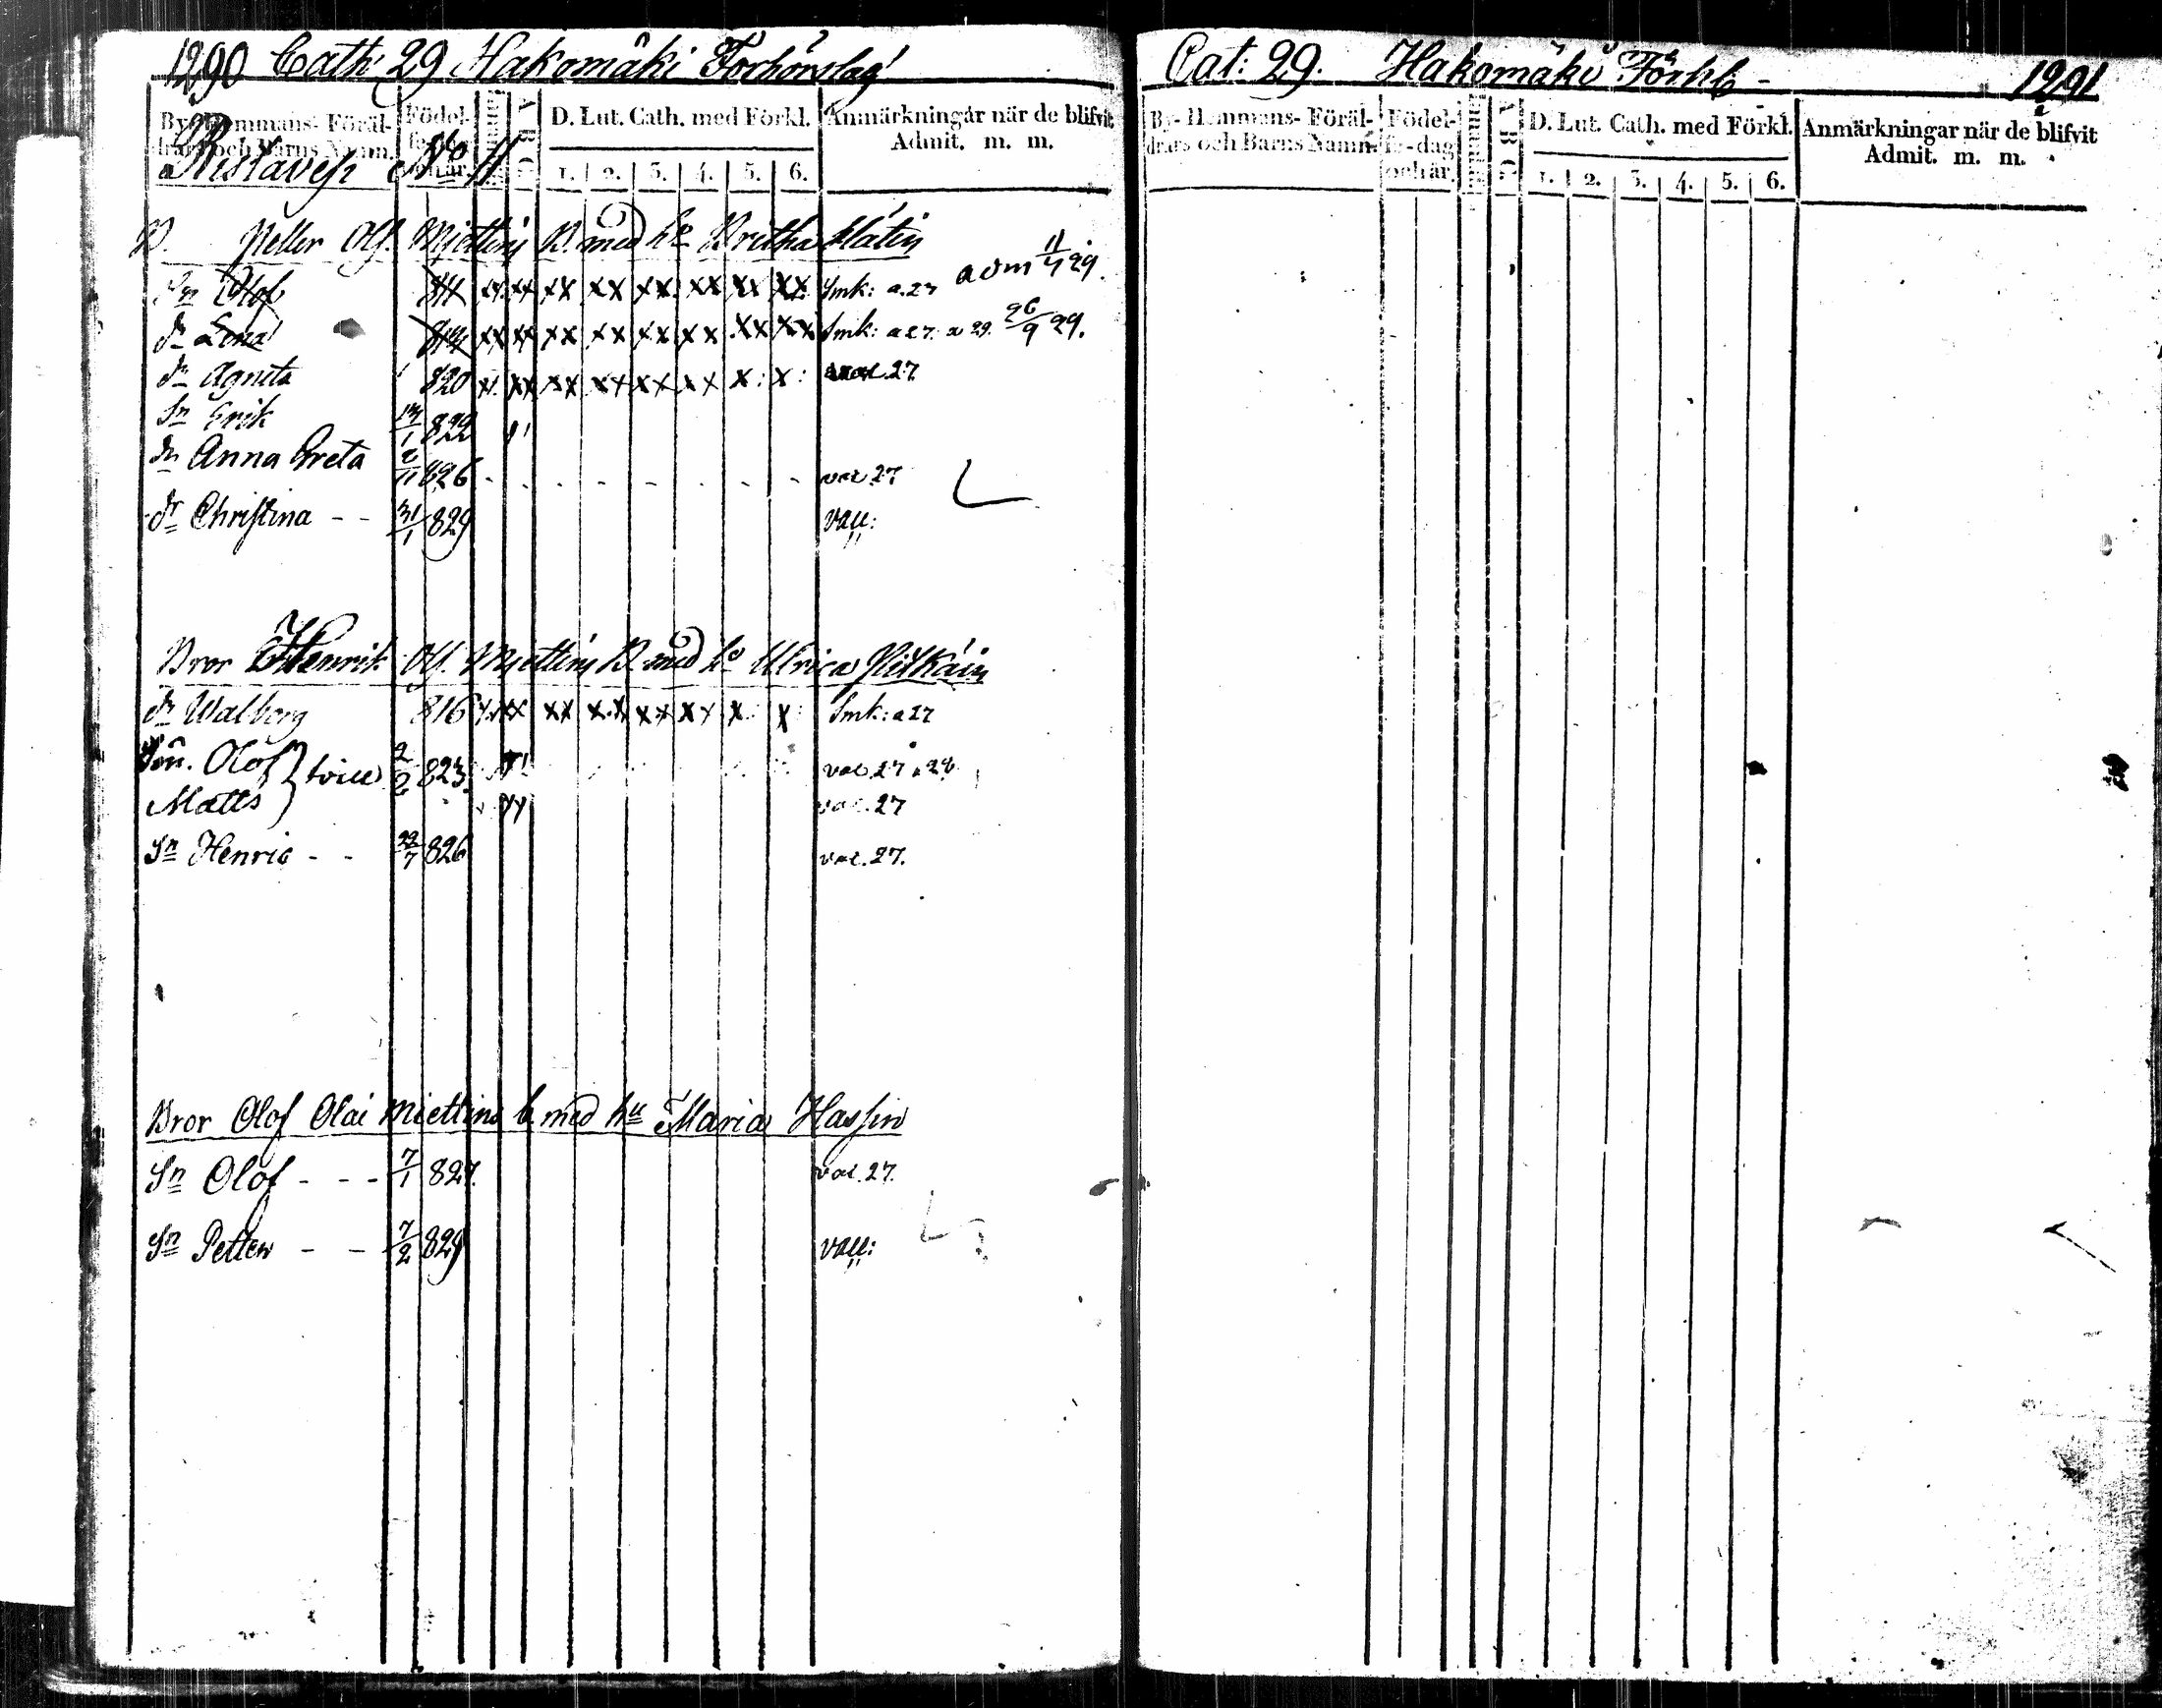 1290 Cath: 29 Hakomäki Förhörslag
By- Hemmans- Föräl- drars och Barns Namn. Födel- se-dag och år. A B C D. Lut. Cath. med Förkl. Anmärkningar när de blifvit Admit. m. m.
1. 2. 3. 4. 5. 6.
Ristavesi No 11
B. Petter Olss. Miettin B. med h. Britha Matin
Sn Olof 811 xx xx xx xx xx xx xx xx Smk: a. 27 adm 11/4 29.
dr Lena 814 xx xx xx xx xx xx xx xx Smk: a 27. a 29. 26/9 29.
dr Agneta 820 x. xx xx xx xx xx x: x: 27
Sn Erik 13/1 822
dr Anna Greta 2/11 826 - - - - - - - - vac 27
dr Christina - - 31/1 829 vacc:
Bror Henrik Olss. Miettin B. med h. Ulrica Pitkäin
dr Walborg 816 x. xx xx x.x xx xx x. x: Smk: a 27
Sön. Olof } tvill 2/2 823. vac. 27. a 28
Matts vac. 27
Sn Henric - - 22/7 826 vac. 27.
Bror Olof Olai Miettin b. med hu Maria Hassin
Sn Olof - - - 7/1 827. vac. 27.
Sn Petter - - 7/2 829 vacc:
Cat: 29. Hakomäki Förhl - 1291
By- Hemmans- Föräl- drars och Barns Namn. Födel- se-dag och år. A B C D. Lut. Cath. med Förkl. Anmärkningar när de blifvit Admit. m. m.
1. 2. 3. 4. 5. 6.